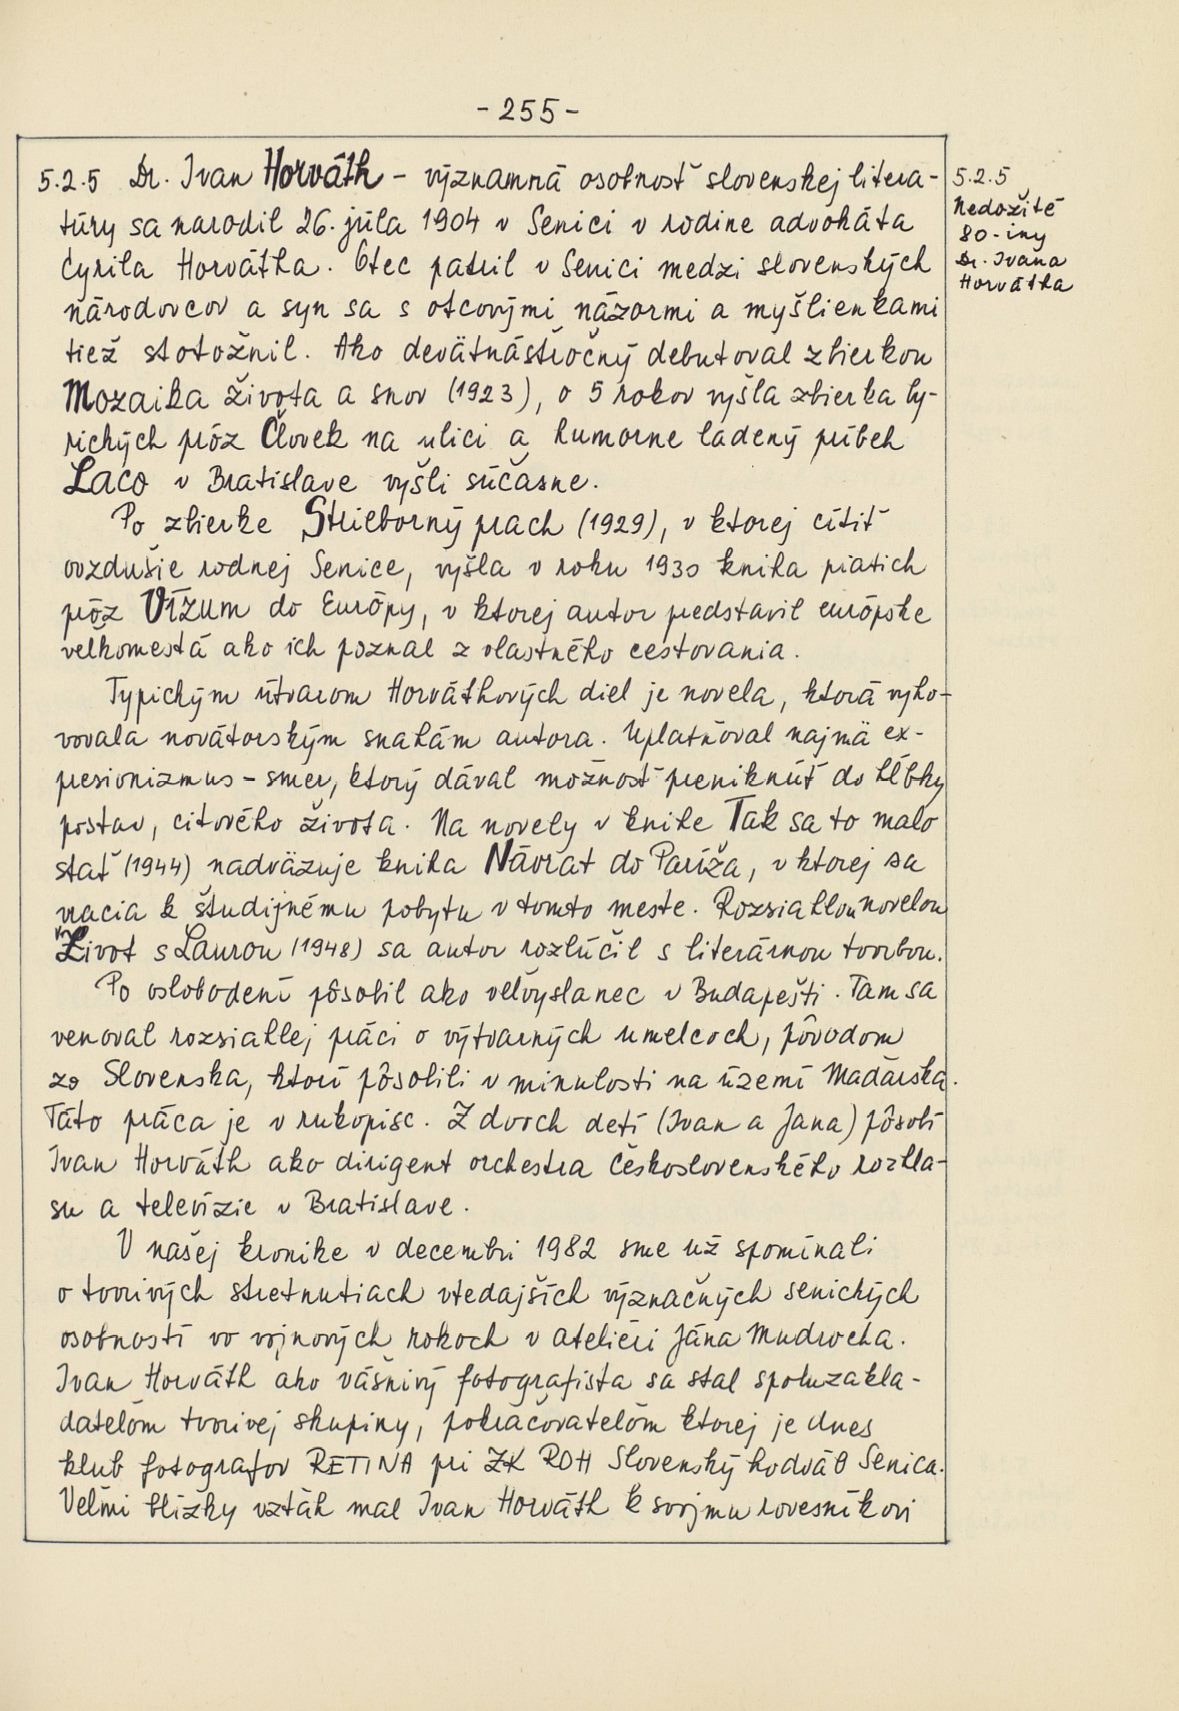 - 255 -
5.2.5 Dr. Ivan Horváth - významná osobnosť slovenskej litera-
túry sa narodil 26. júla 1904 v Senici v rodine advokáta
Cyrila Horvátha. Otec patril v Senici medzi slovenských
národovcov a syn sa s otcovými názormi a myšlienkami
tiež stotožnil. Ako devätnásťročný debutoval zbierkou
Mozaika života a snov (1923), o 5 rokov vyšla zbierka ly-
rických próz Človek na ulici a humorne ladený príbeh
Laco v Bratislave vyšli súčasne.
Po zbierke Strieborný prach (1929), v ktorej cítiť
ovzdušie rodnej Senice, vyšla v roku 1930 kniha piatich
próz Vízum do Európy, v ktorej autor predstavil európske
veľkomestá ako ich poznal z vlastného cestovania.
Typickým útvarom Horváthových diel je novela, ktorá vyho-
vovala novátorským snahám autora. Uplatňoval najmä ex-
presionizmus - smer, ktorý dával možnosť preniknúť do hĺbky
postav, citového života. Na novely v knihe Tak sa to malo
stať (1944) nadväzuje kniha Návrat do Paríža, v ktorej sa
vracia k študijnému pobytu v tomto meste. Rozsiahlou novelou
Život s Laurou (1948) sa autor rozlúčil s literárnou tvorbou.
Po oslobodení pôsobil ako veľvyslanec v Budapešti. Tam sa
venoval rozsiahlej práci o výtvarných umelcoch, pôvodom
zo Slovenska, ktorí pôsobili v minulosti na území Maďarska.
Táto práca je v rukopise. Z dvoch detí (Ivan a Jana) pôsobí
Ivan Horváth ako dirigent orchestra Československého rozhla-
su a televízie v Bratislave.
V našej kronike v decembri 1982 sme už spomínali
o tvorivých stretnutiach vtedajších význačných senických
osobností vo vojnových rokoch v ateliéri Jána Mudrocha.
Ivan Horváth ako vášnivý fotografista sa stal spoluzakla-
dateľom tvorivej skupiny, pokračovateľom ktorej je dnes
klub fotografov RETINA pri ZK ROH Slovenský hodváb Senica.
Veľmi blízky vzťah mal Ivan Horváth k svojmu rovesníkovi
5.2.5
Nedožité
80-iny
Dr. Ivana
Horvátha